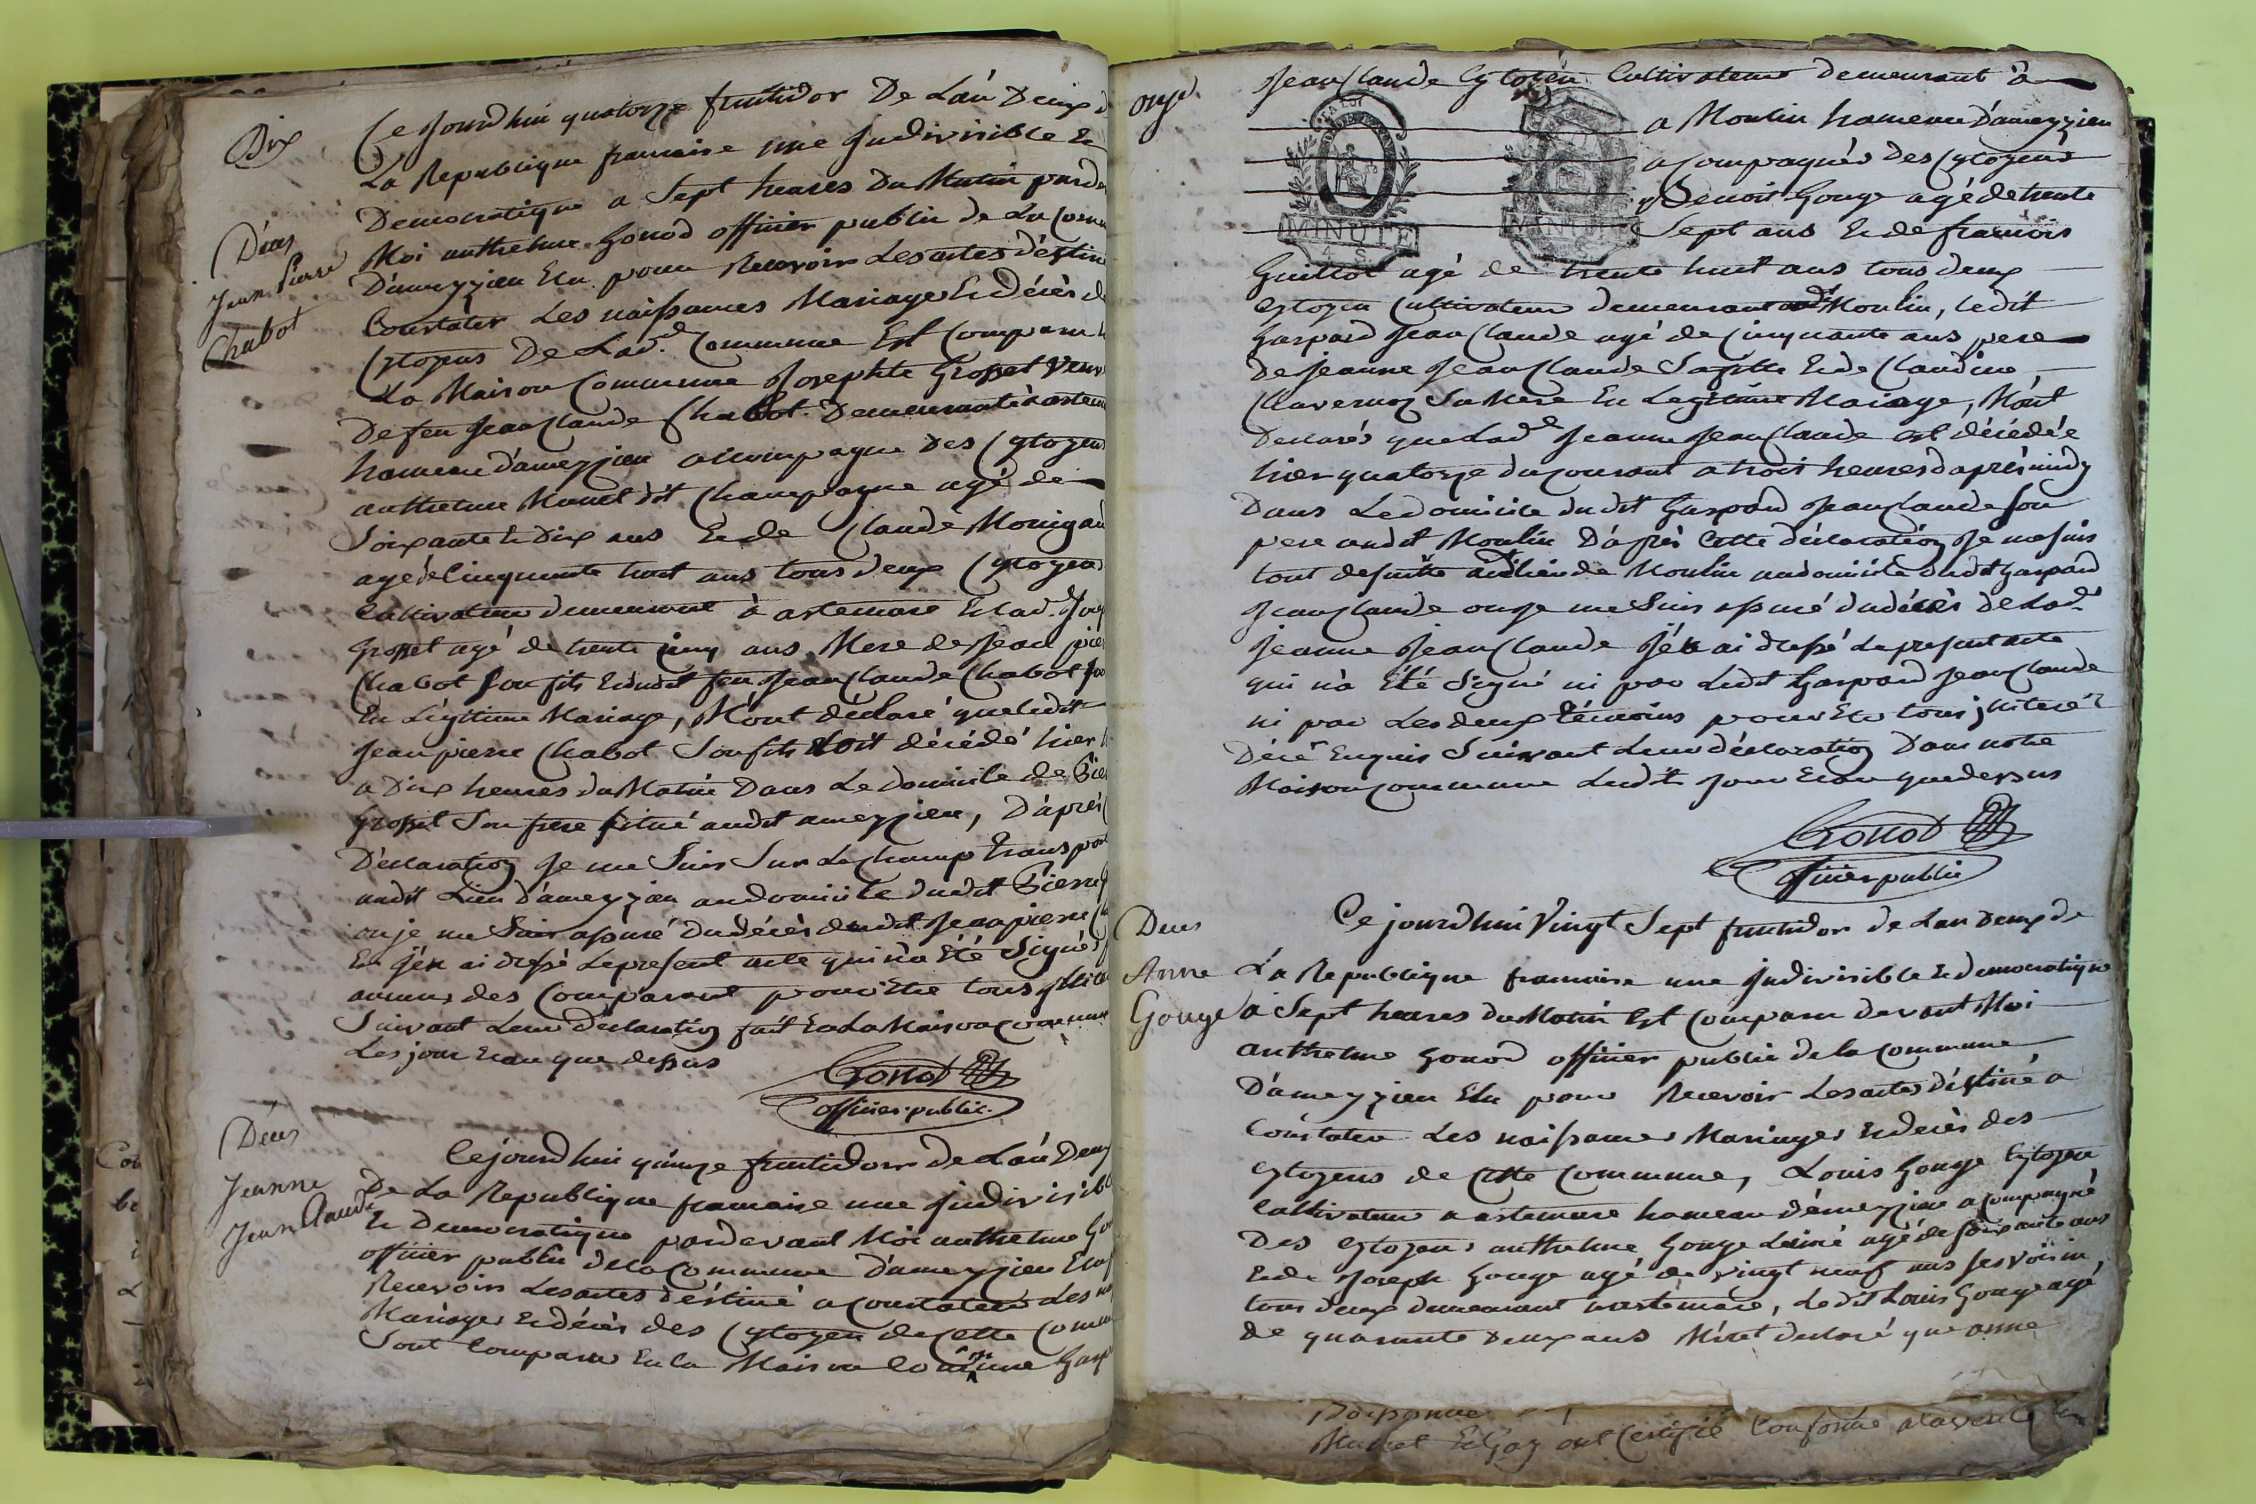 Dix
Décès
Jean Pierre
Chabot
Ce Jourdhui quatorze fructidor De Lán Deux d
La Republique francaise une Judivisible Et
Democratique a Sept heures Du Matin pard
Moi anthelme Gonod officier public de La Comm
D'ameyzien Elu pour Recevoir Les actes déstin
Constater Les naissances Mariages Et décès d
Cytoyens De Lad.e Commune Est Comparu
La Maison Commune Josephte Grosset Veuv
De feu Jean Claude Chabot Demeurante à artem
hameau d'ameyzieu accompagne Des Cytoyens
anthelme Manet dit Champagne agé de
Soixante Et Dix ans Et de Claude
agé de Cinquante huit ans tous deux Cytoyens
Cultivateurs demeurant à artemare Et lad.e
Grosset agé de trente cinq ans Mere de Jean pier
Chabot Son fils Et dudit feu Jean Claude Chabot
En Légitime Mariage, M'ont déclaré que ledit
Jean pierre Chabot Son fils Etoit décédé hier
a Dix heures du Matin Dans Le domicile de Pier
Grosset Son frere Situé audit ameyzieu, D'après
Déclaration Je me Suis Sur Le Champ transpor
audit Lieu d'ameyzieu au domicile dudit Pierre
ou je me Suis assuré Du décès dudit Jean pierre
Et J'en ai dressé Le present acte qui n'a Eté Signé
aucuns des Comparant pour Etre tous
Suivant Leur déclaration fait En La Maison commune
Les jour Et an que dessus
Gonod
officier public
Décès
Jeanne
Jean Claude
Cejourdhui quinze fructidor de Lán Deux
De La Republique francaise une Judivisibl
Et Democratique pardevant Moi anthelme Go
officier public de la Commune d'ameyzieu Elu
Recevoir Les actes déstiné a Constater Les n
Mariages Et décès des Cytoyen de Cette Comm
Sont Comparu En la Maison Commune Gasp
onze
Jean Claude Cytoyen Cultivateur demeurant à
a Moulin hameau D'ameyzieu
acompagnés Des Cytoyens
Benoit Gouge agé de trente
Sept ans Et de francois
MINUTE
MINUTE
Guillot agé de trente huit ans tous deux
Cytoyen Cultivateur demeurant audt Moulin, ledit
Gaspard Jean Claude agé de Cinquante ans pere
De jeanne Jean Claude Sa fille Et de Claudine
Clavernoz Sa Mere En Legitime Mariage, M'ont
Declarés que Lad.e Jeanne Jean Claude est décédée
hier quatorze du courant a trois heures d après midy
Dans Le domicile du dit Gaspard Jean Claude Son
pere audit Moulin D'après Cette déclaration Je me suis
tout de suitte audt lieu de Moulin au domicile dudit Gaspard
Jean Claude ou je me Suis assuré du décès de Lad.e
Jeanne Jean Claude J'én ai dressé Le present acte
qui n'a Eté Signé ni par Ledit Gaspard Jean Claude
ni par Les deux témoins pour Etre tous
De ce Enquis Suivant Leur déclaration Dans notre
Maison commune Ledit Jour Et an que dessus
Gonod
officier public
Deces
Anne
Gouge
Ce jourdhui Vingt Sept fructidor de Lan Deux de
La Republique francaise une Judivisible Et democratique
a Sept heures du Matin Est Comparu devant Moi
anthelme Gonod officier public de la Commune
D'ameyzieu Elu pour Recevoir Les actes déstiné a
Constater Les naissances Mariages Et décès des
Cytoyens de Cette Commune, Louis Gouge Cytoyen
Cultivateur a artemare hameau d'ameyzieu acompagné
Des Cytoyens anthelme Gouge Lainé agé de soixante ans
Et de Joseph Gouge agé de vingt neuf ans ses voisin
tous deux demeurant a artemare, Ledit Louis Gouge agé
de quarante Deux ans M'a et declaré que anne
Manet Et ont Certifié Conforme a la verité